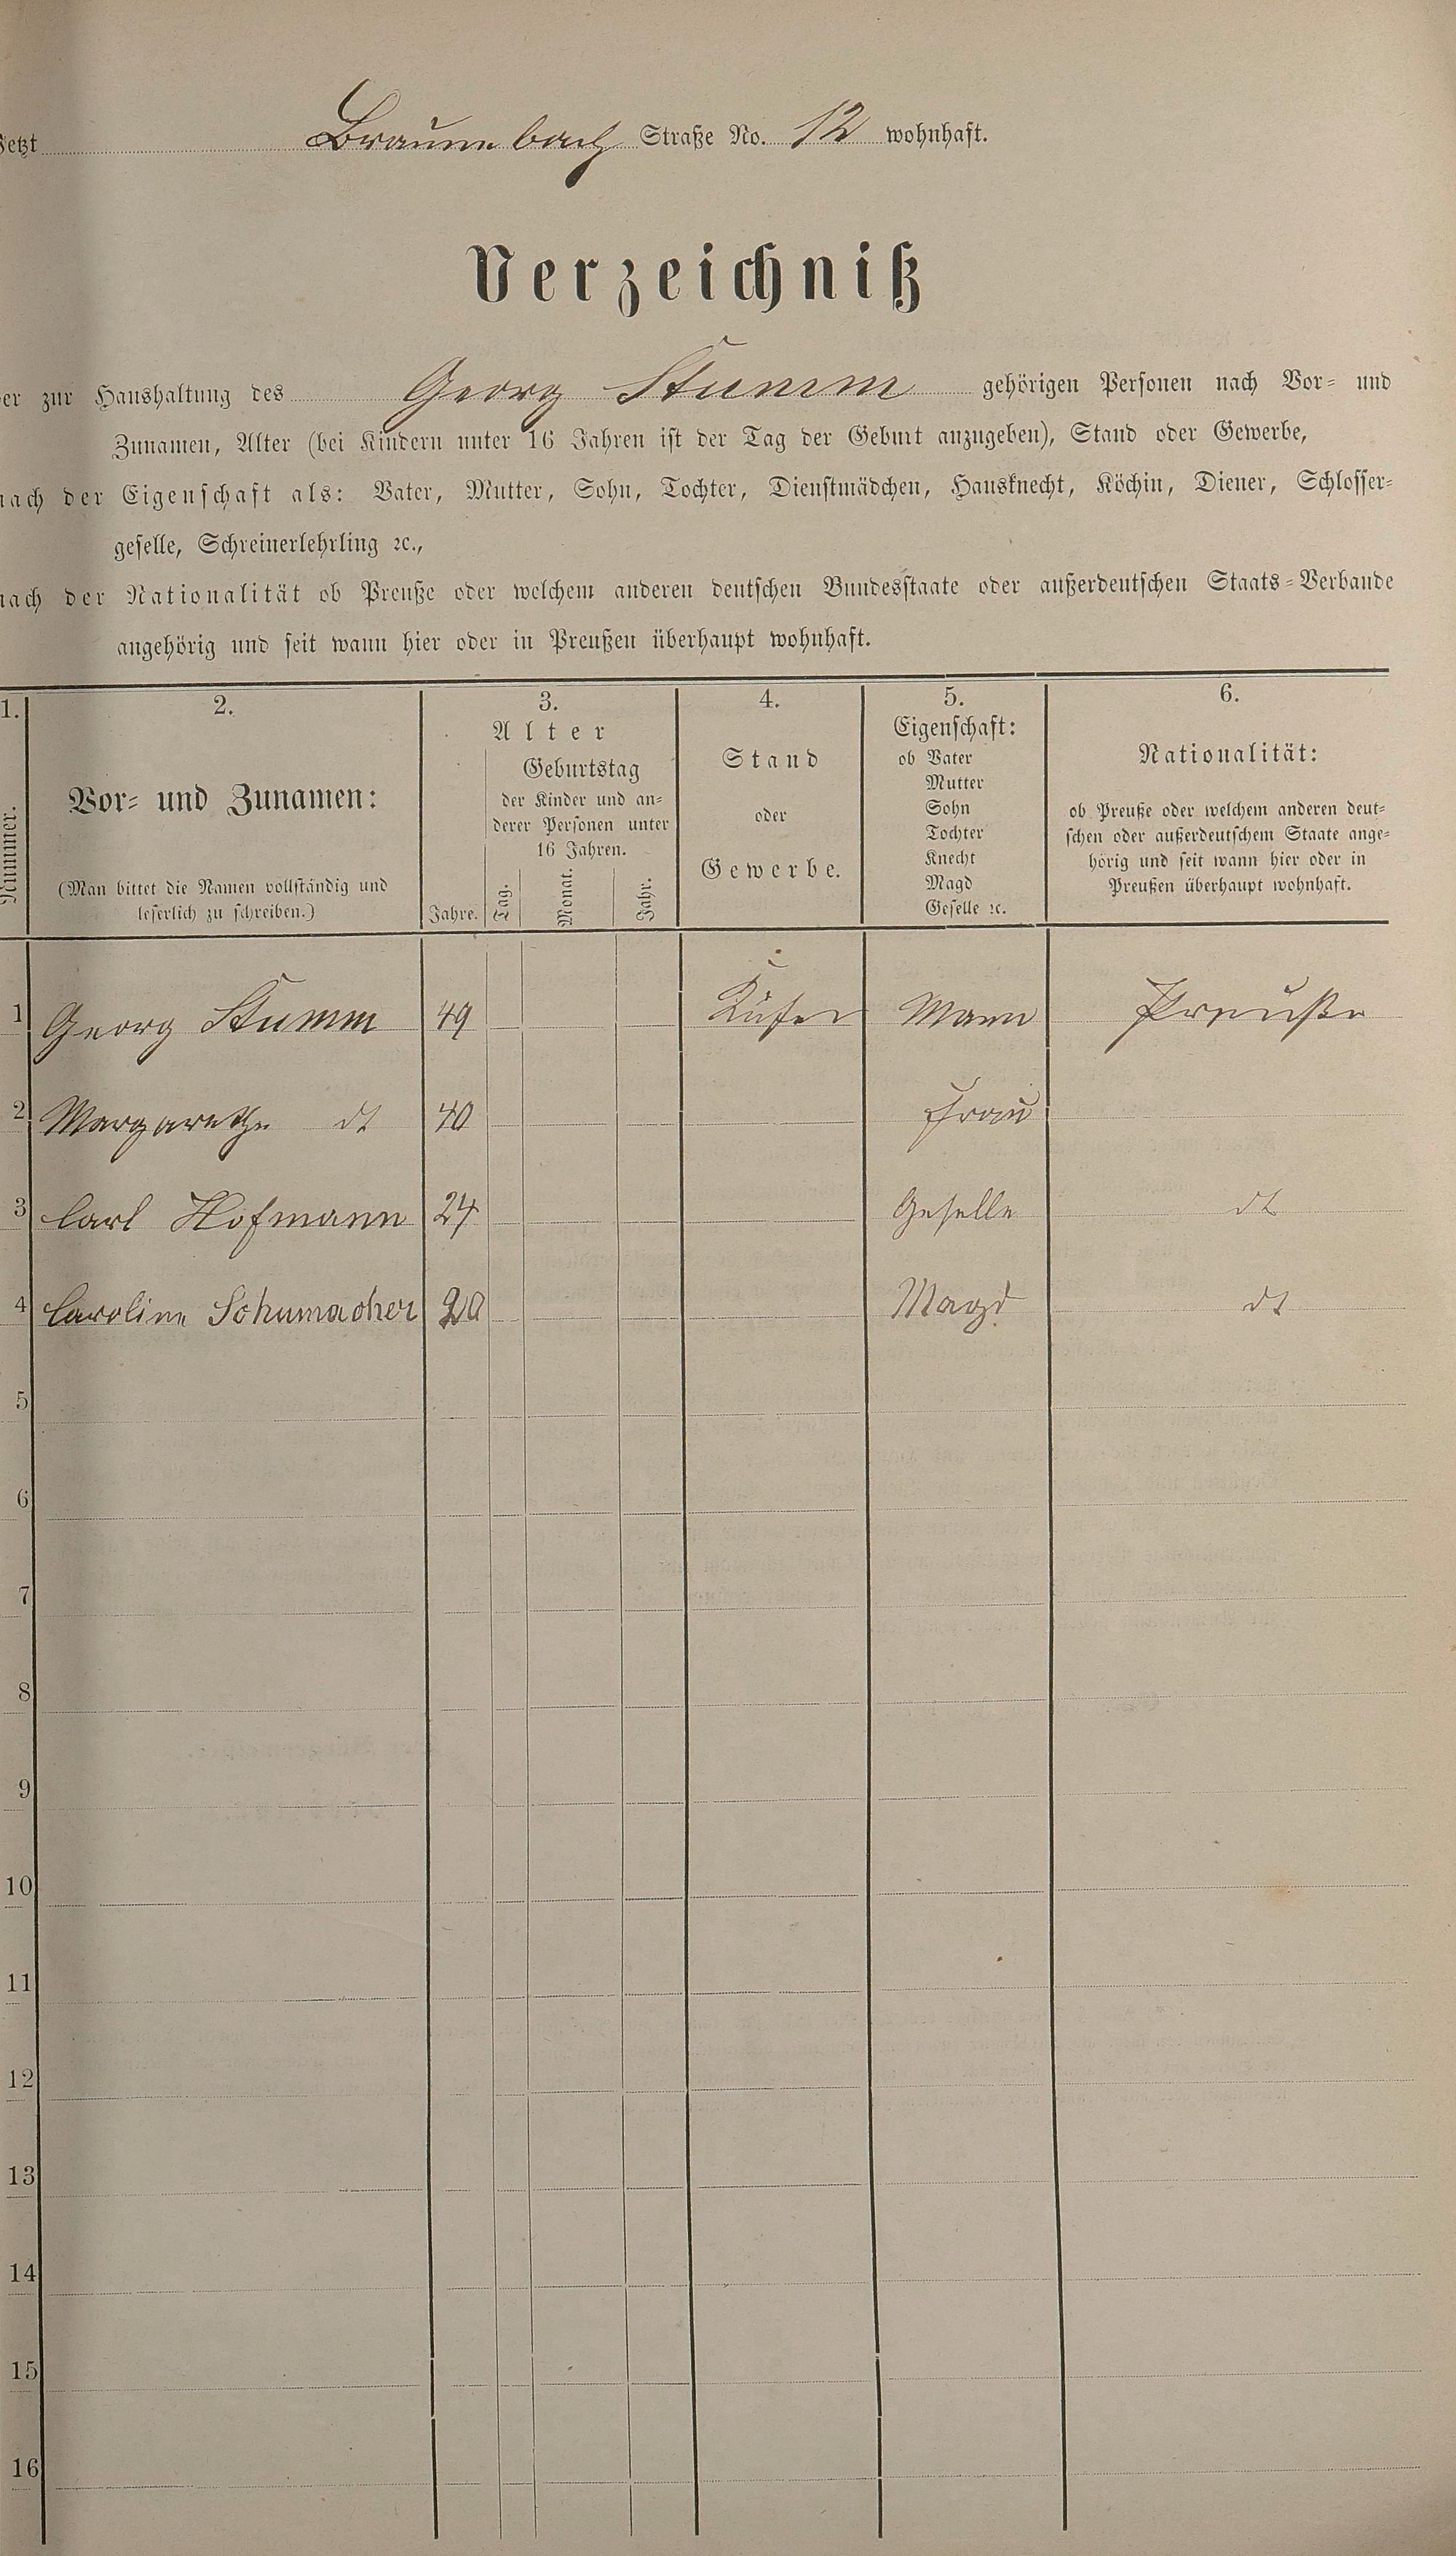 Jetzt Braunnbach Straße No. 12 wohnhaft.
Verzeichniß
der zur Haushaltung des Georg Stumm gehörigen Personen nach Vor- und
Zunamen, Alter (bei Kindern unter 16 Jahren ist der Tag der Geburt anzugeben), Stand oder Gewerbe,
nach der Eigenschaft als: Vater, Mutter, Sohn, Tochter, Dienstmädchen, Hausknecht, Köchin, Diener, Schlosser-
geselle, Schreinerlehrling ꝛc.,
nach der Nationalität ob Preuße oder welchem anderen deutschen Bundesstaate oder außerdeutschen Staats-Verbande
angehörig und seit wann hier oder in Preußen überhaupt wohnhaft.
1. 2. 3. 4. 5. 6.
Nummer.
Vor- und Zunamen:
(Man bittet die Namen vollständig und
leserlich zu schreiben.)
Alter
Geburtstag
der Kinder und an-
derer Personen unter
16 Jahren.
Jahre. Tag. Monat. Jahr.
Stand
oder
Gewerbe.
Eigenschaft:
ob Vater
Mutter
Sohn
Tochter
Knecht
Magd
Geselle ꝛc.
Nationalität:
ob Preuße oder welchem anderen deut-
schen oder außerdeutschem Staate ange-
hörig und seit wann hier oder in
Preußen überhaupt wohnhaft.
1 Georg Stumm 49 Küfer Mann Preuße
2 Margarethe dt 40 Frau
3 Carl Hofmann 24 Geselle dt
4 Caroline Schumacher 20 Magd dt
5
6
7
8
9
10
11
12
13
14
15
16